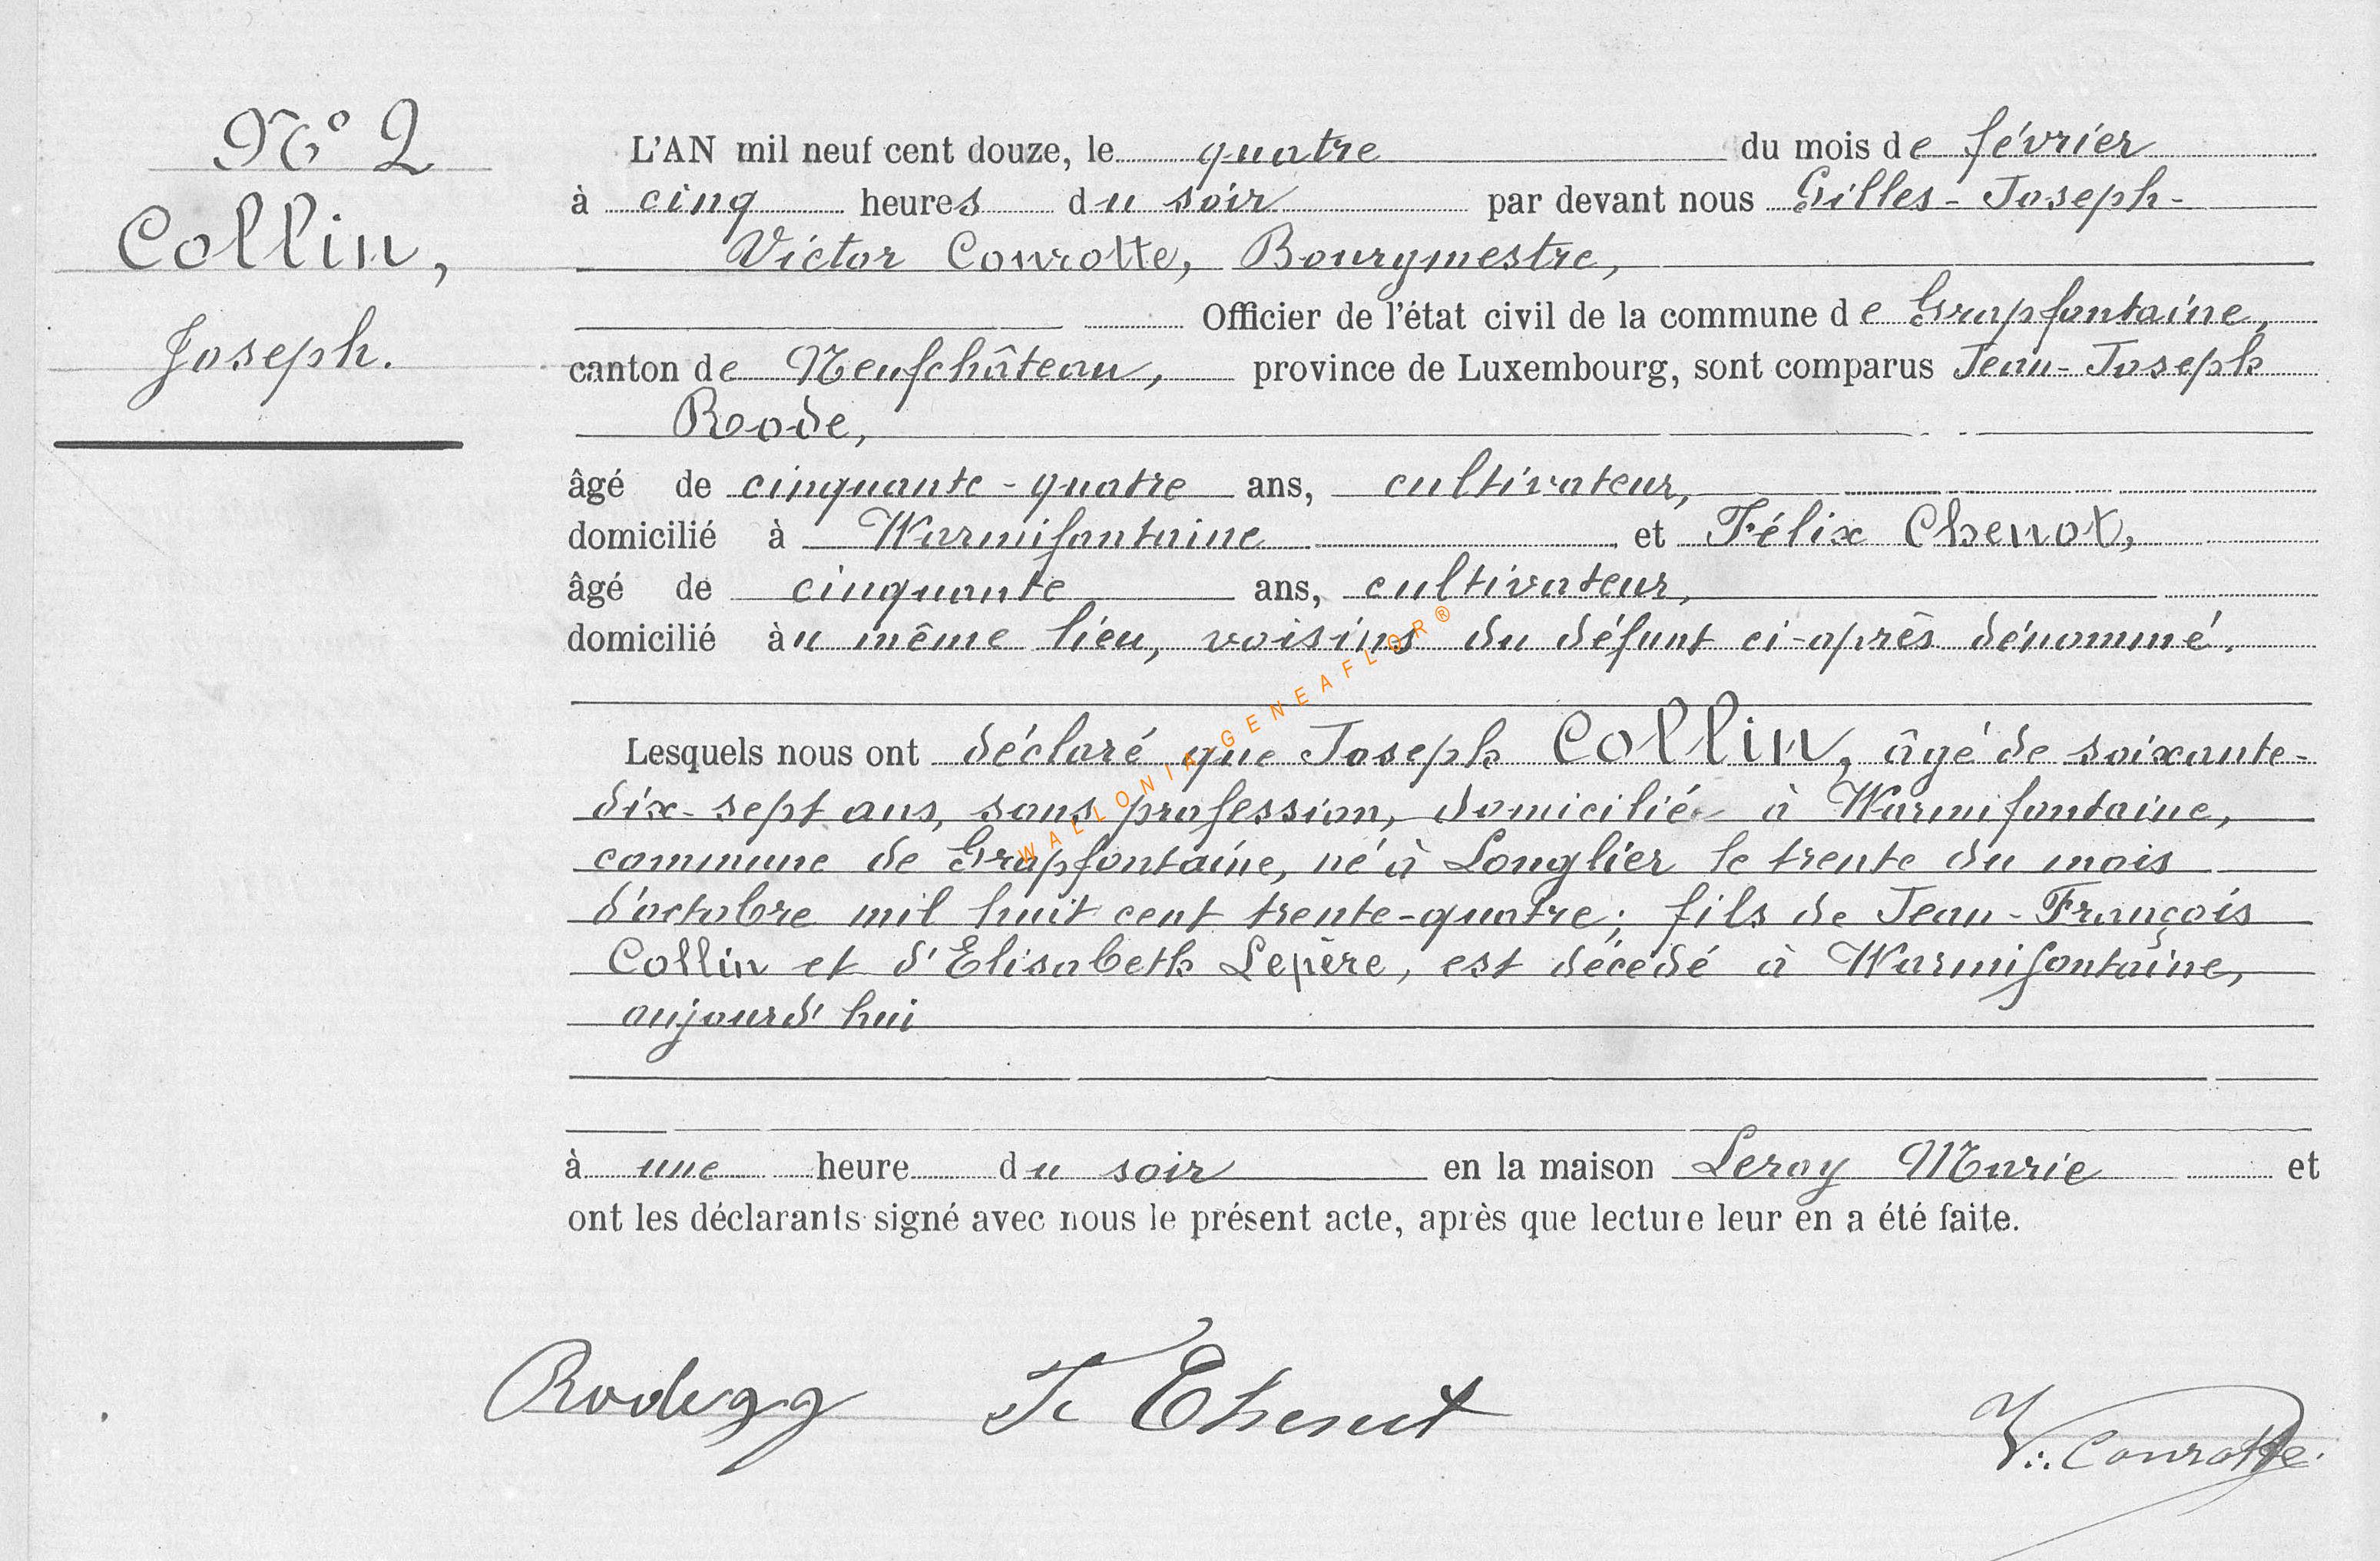 N° 2
Collin,
Joseph.
L'AN mil neuf cent douze, le quatre du mois de février
à cinq heures du soir par devant nous Gilles-Joseph-
Victor Conrotte, Bourgmestre,
Officier de l'état civil de la commune de Grapfontaine,
canton de Neufchâteau, province de Luxembourg, sont comparus Jean-Joseph
Rode,
âgé de cinquante-quatre ans, cultivateur,
domicilié à Warmifontaine et Félix Chenot,
âgé de cinquante ans, cultivateur,
domicilié àu même lieu, voisins du défunt ci-après dénommé.
Lesquels nous ont déclaré que Joseph Collin, âgé de soixante-
dix-sept ans, sans profession, domicilié à Warmifontaine,
commune de Grapfontaine, né à Longlier le trente du mois
d'octobre mil huit cent trente-quatre; fils de Jean-François
Collin et d'Elisabeth Lepère, est décédé à Warmifontaine,
aujourd'hui
à une heure du soir en la maison Leroy Marie et
ont les déclarants signé avec nous le présent acte, après que lecture leur en a été faite.
Rode JJ F Chenot V. Conrotte
WALLONIA-GENEAFLOR®